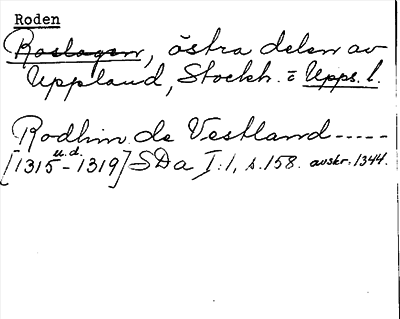 Roden
Roslagen, östra delen av
Uppland, Stockh. o Upps. l.
Rodhin de Vestland -----
u.d.
[1315-1319] SDa I:1, s.158. avskr. 1344.